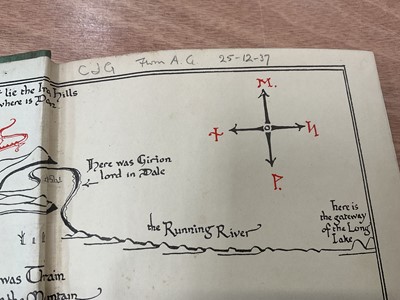 CJG From A.G. 25-12-37
lie the Iron Hills
where is Dain
ᛖ.
ᚾ ᛋ
ᚹ.
Here was Girion
lord in Dale
the Running River
here is
the gateway
of the Long
Lake
was Train
the Mountain